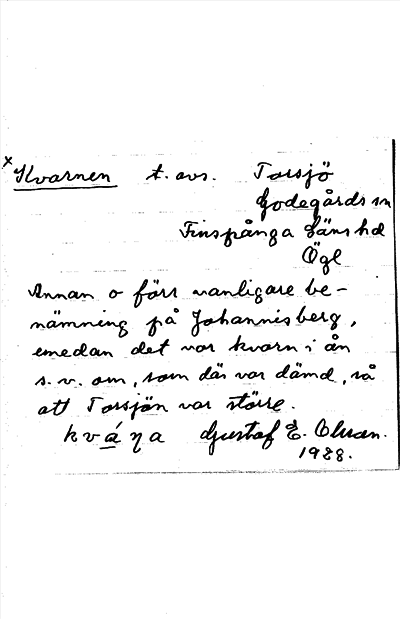 x Kvarnen t. avs. Torsjö
Godegårds sn
Finspånga läns hd
Ögl
Annan o förr vanligare be-
nämning på Johannisberg,
emedan det var kvarn i ån
s. v. om, som där var dämd, så
att Torsjön var större.
kváŋa Gustaf E. Olsson.
1928.